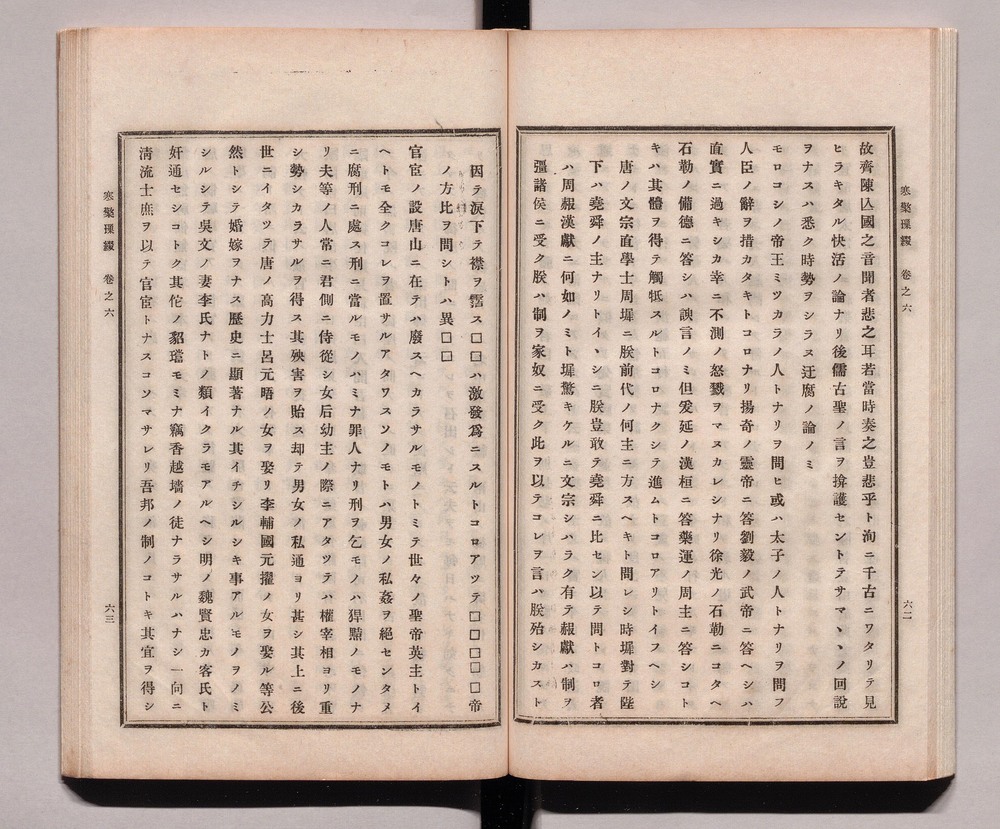 寒檠璅綴 卷之六 六二
故齊陳亾國之音聞者悲之耳若當時奏之豈悲乎ト洵ニ千古ニワタリテ見
ヒラキタル快活ノ論ナリ後儒古聖ノ言ヲ揜護セントテサマ〻〻ノ回說
ヲナスハ悉ク時勢ヲシラヌ迂腐ノ論ノミ
モロコシノ帝王ミツカラノ人トナリヲ問ヒ或ハ太子ノ人トナリヲ問フ
人臣ノ辭ヲ措カタキトコロナリ揚奇ノ靈帝ニ答劉毅ノ武帝ニ答ヘシハ
直實ニ過キシカ幸ニ不測ノ怒戮ヲマヌカレシナリ徐光ノ石勒ニコタヘ
石勒ノ備德ニ答シハ諛言ノミ但爰延ノ漢桓ニ答藥運ノ周主ニ答シコト
キハ其體ヲ得テ觸牴スルトコロナクシテ進ムトコロアリトイフヘシ
唐ノ文宗直學士周墀ニ朕前代ノ何主ニ方スヘキト問レシ時墀對テ陛
下ハ堯舜ノ主ナリトイヽシニ朕豈敢テ堯舜ニ比セン以テ問トコロ者
ハ周赧漢獻ニ何如ノミト墀驚キケルニ文宗シハラク有テ赧獻ハ制ヲ
彊諸侯ニ受ク朕ハ制ヲ家奴ニ受ク此ヲ以テコレヲ言ハ朕殆シカスト
因テ淚下テ襟ヲ霑ス□□ハ激發爲ニスルトコロアツテ□□□□□帝
ノ方比ヲ問シトハ異□□
官宦ノ設唐山ニ在テハ廢スヘカラサルモノトミテ世々ノ聖帝英主トイ
ヘトモ全クコレヲ置サルアタワスソノモトハ男女ノ私姦ヲ絕センタメ
ニ腐刑ニ處ス刑ニ當ルモノハミナ罪人ナリ刑ヲ乞モノハ猂黠ノモノナ
リ夫等ノ人常ニ君側ニ侍從シ女后幼主ノ際ニアタツテハ權宰相ヨリ重
シ勢シカラサルヲ得ス其殃害ヲ貽ス却テ男女ノ私通ヨリ甚シ其上ニ後
世ニイタツテ唐ノ高力士呂元晤ノ女ヲ娶リ李輔國元擢ノ女ヲ娶ル等公
然トシテ婚嫁ヲナス歷史ニ顯著ナル其イチシルシキ事アルモノヲノミ
シルシテ吳文ノ妻李氏ナトノ類イクラモアルヘシ明ノ魏賢忠カ客氏ト
奸通セシコトク其佗ノ貂璫モミナ竊香越墻ノ徒ナラサルハナシ一向ニ
淸流士庶ヲ以テ官宦トナスコソマサレリ吾邦ノ制ノコトキ其宜ヲ得シ
寒檠璅綴 卷之六 六三